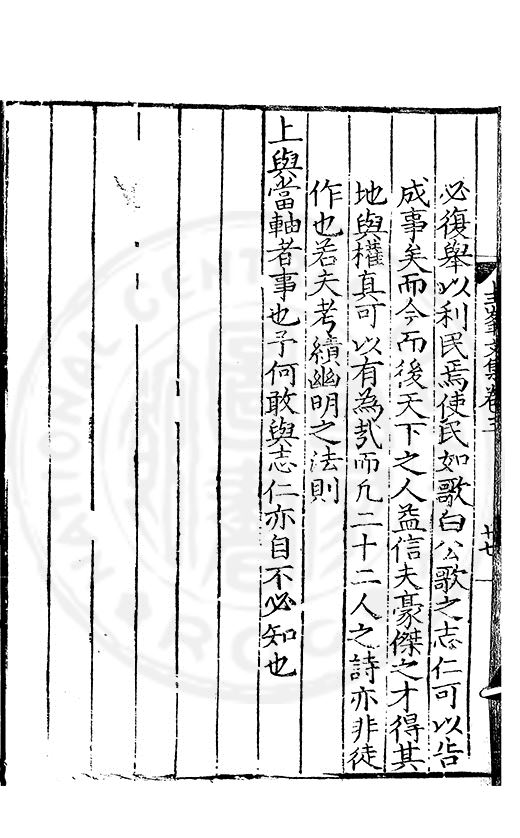 必復舉以利民焉使民如歌白公歌之志仁可以告
成事矣而今而後天下之人益信夫豪傑之才得其
地與權真可以有為哉而凡二十二人之詩亦非徒
作也若夫考績幽明之法則
上與當軸者事也予何敢與志仁亦自不必知也
文集卷三
廿七